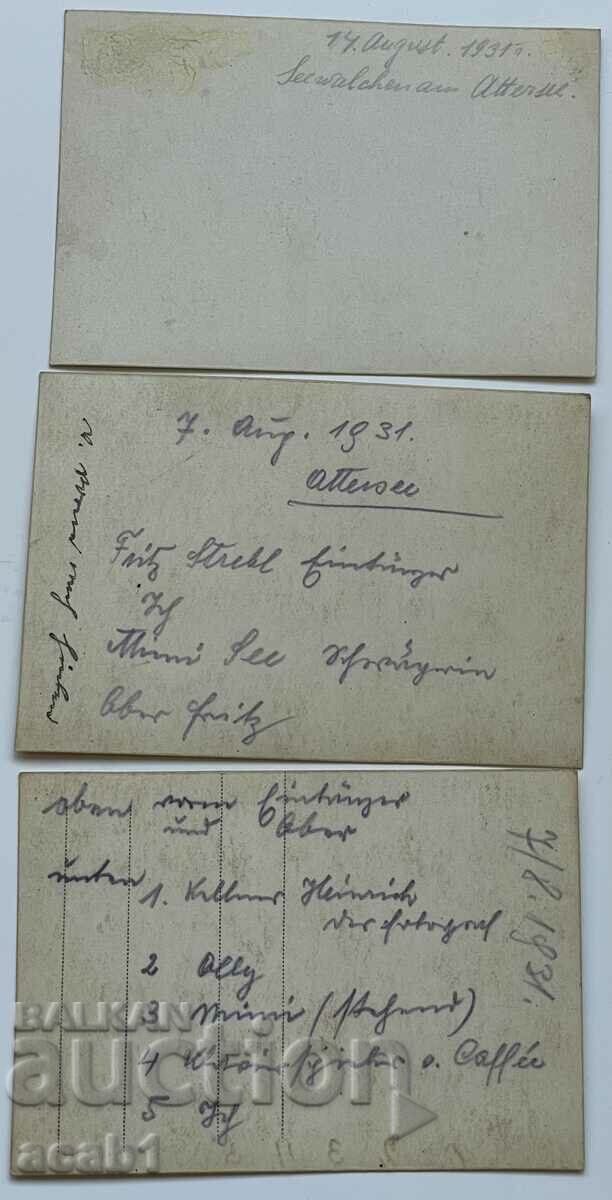 14. August. 1931.
Seewalchen am Attersee.
7. Aug. 1931.
Attersee
Fritz Strebl Eintänzer
Ich
Mimi See Schwägerin
Ober Fritz
v.
oben vorn Eintänzer
und Ober
unten
1. Kellner Heinrich
der Fotograf
2 Olly
3 Mimi (stehend)
4 v. Caffée
5 Ich
7/8. 1931.
BALKAN
auction
acab1